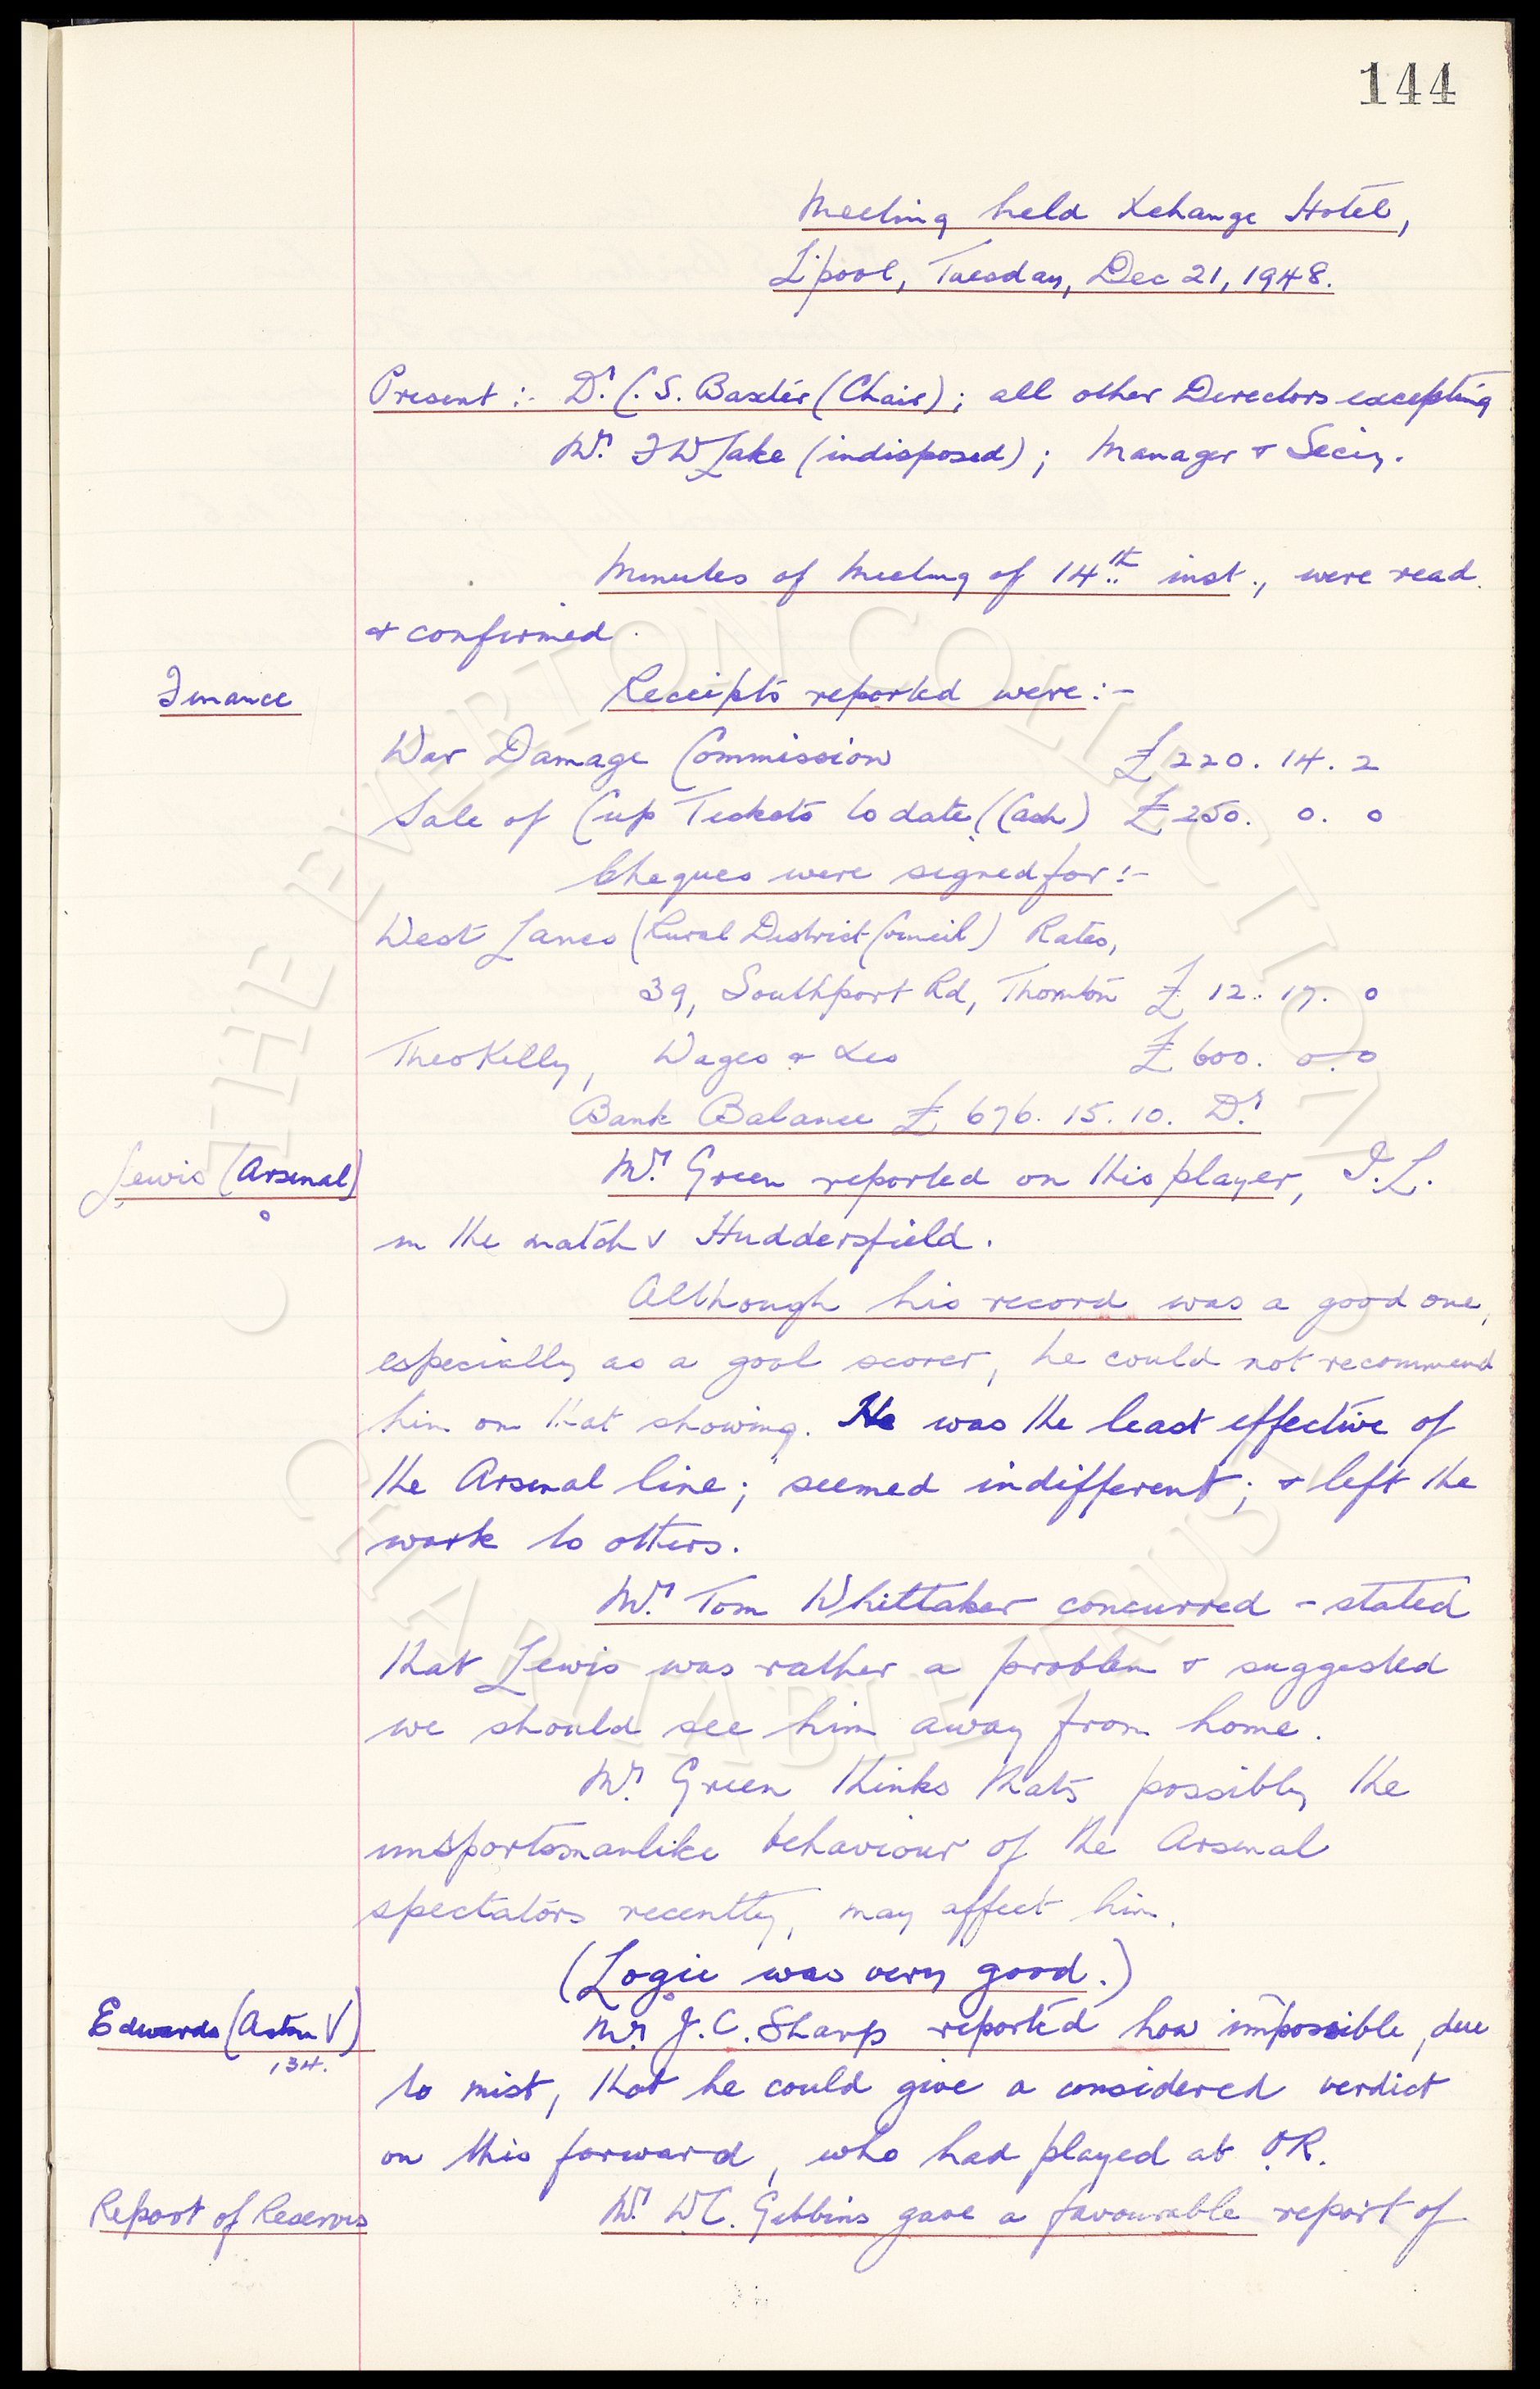 144
Meeting held Xchange Hotel,
L'pool, Tuesday, Dec 21, 1948.
Present :- Dr. C.S. Baxter (Chair); all other Directors excepting
Mr. F W Lake (indisposed); Manager & Secy.
Minutes of Meeting of 14th inst., were read
& confirmed.
Finance
Receipts reported were:-
War Damage Commission £220. 14. 2
Sale of Cup Tickets to date (Cash) £250. 0. 0
Cheques were signed for:-
West Lancs (Rural District Council) Rates,
39, Southport Rd, Thornton £ 12. 17. 0
Theo Kelly, Wages & Xes £ 600. 0. 0
Bank Balance £ 676. 15. 10. Dr.
Lewis (Arsenal)
Mr. Green reported on this player, I.L.
in the match v Huddersfield.
Although his record was a good one,
especially as a goal scorer, he could not recommend
him on that showing. He was the least effective of
the Arsenal line; seemed indifferent; & left the
work to others.
Mr. Tom Whittaker concurred - stated
that Lewis was rather a problem & suggested
we should see him away from home.
Mr. Green thinks that possibly the
unsportsmanlike behaviour of the Arsenal
spectators recently, may affect him.
(Logie was very good.)
Edwards (Aston V)
134.
Mr J.C. Sharp reported how impossible, due
to mist, that he could give a considered verdict
on this forward, who had played at I.R.
Report of Reserves
Mr. W.C. Gibbins gave a favourable report of
© THE EVERTON COLLECTION
CHARITABLE TRUST